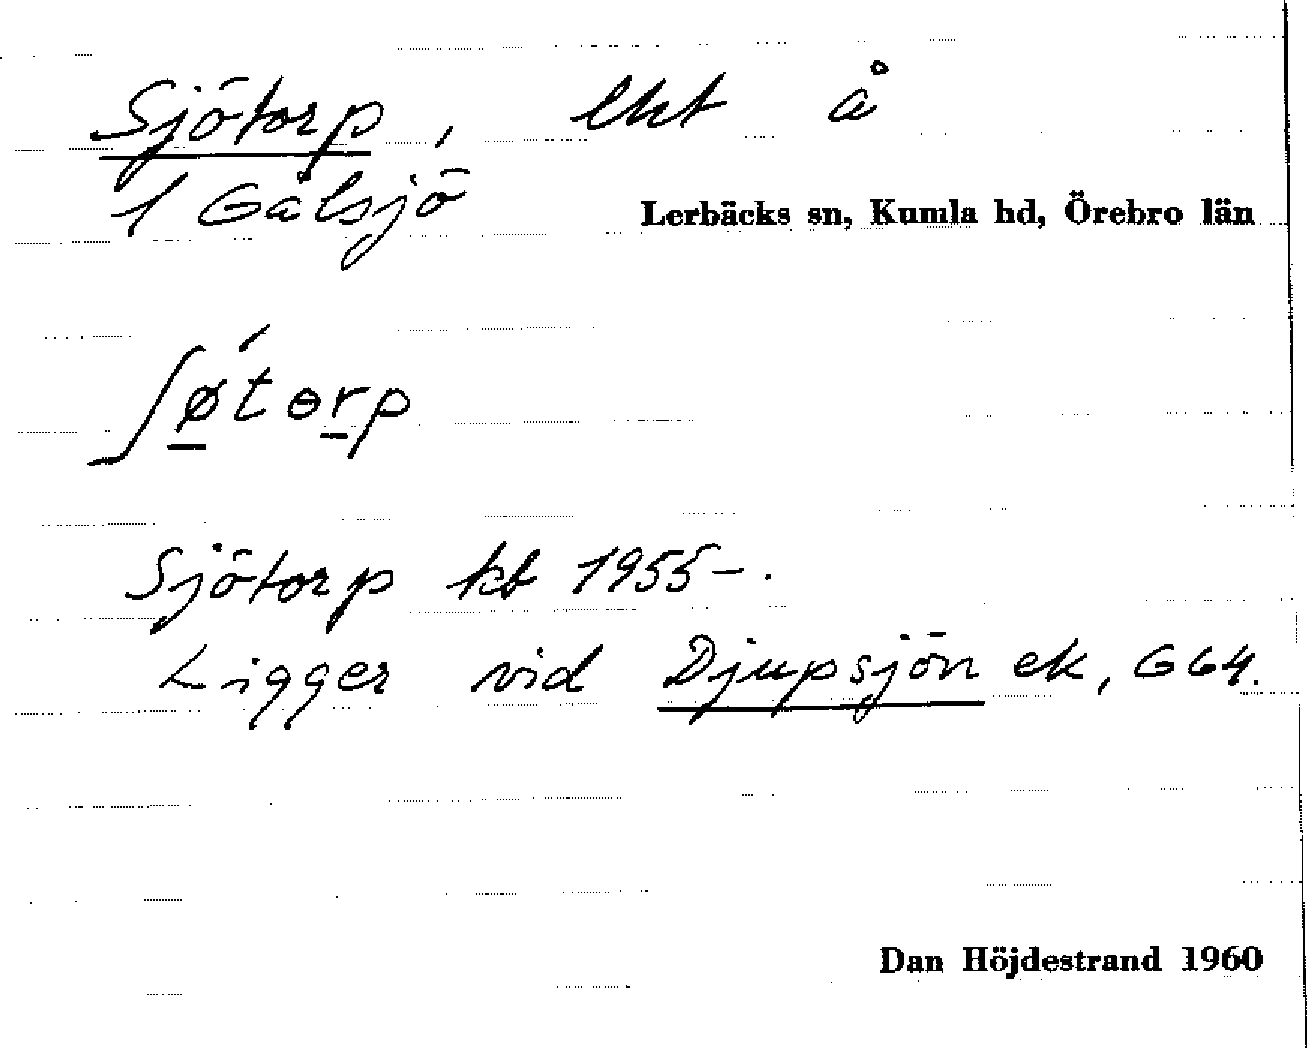 Sjötorp, lht å
1 Gålsjö
Lerbäcks sn, Kumla hd, Örebro län
ʃǿtɵrp
Sjötorp kb 1955-.
Ligger vid Djupsjön ek, G64.
Dan Höjdestrand 1960